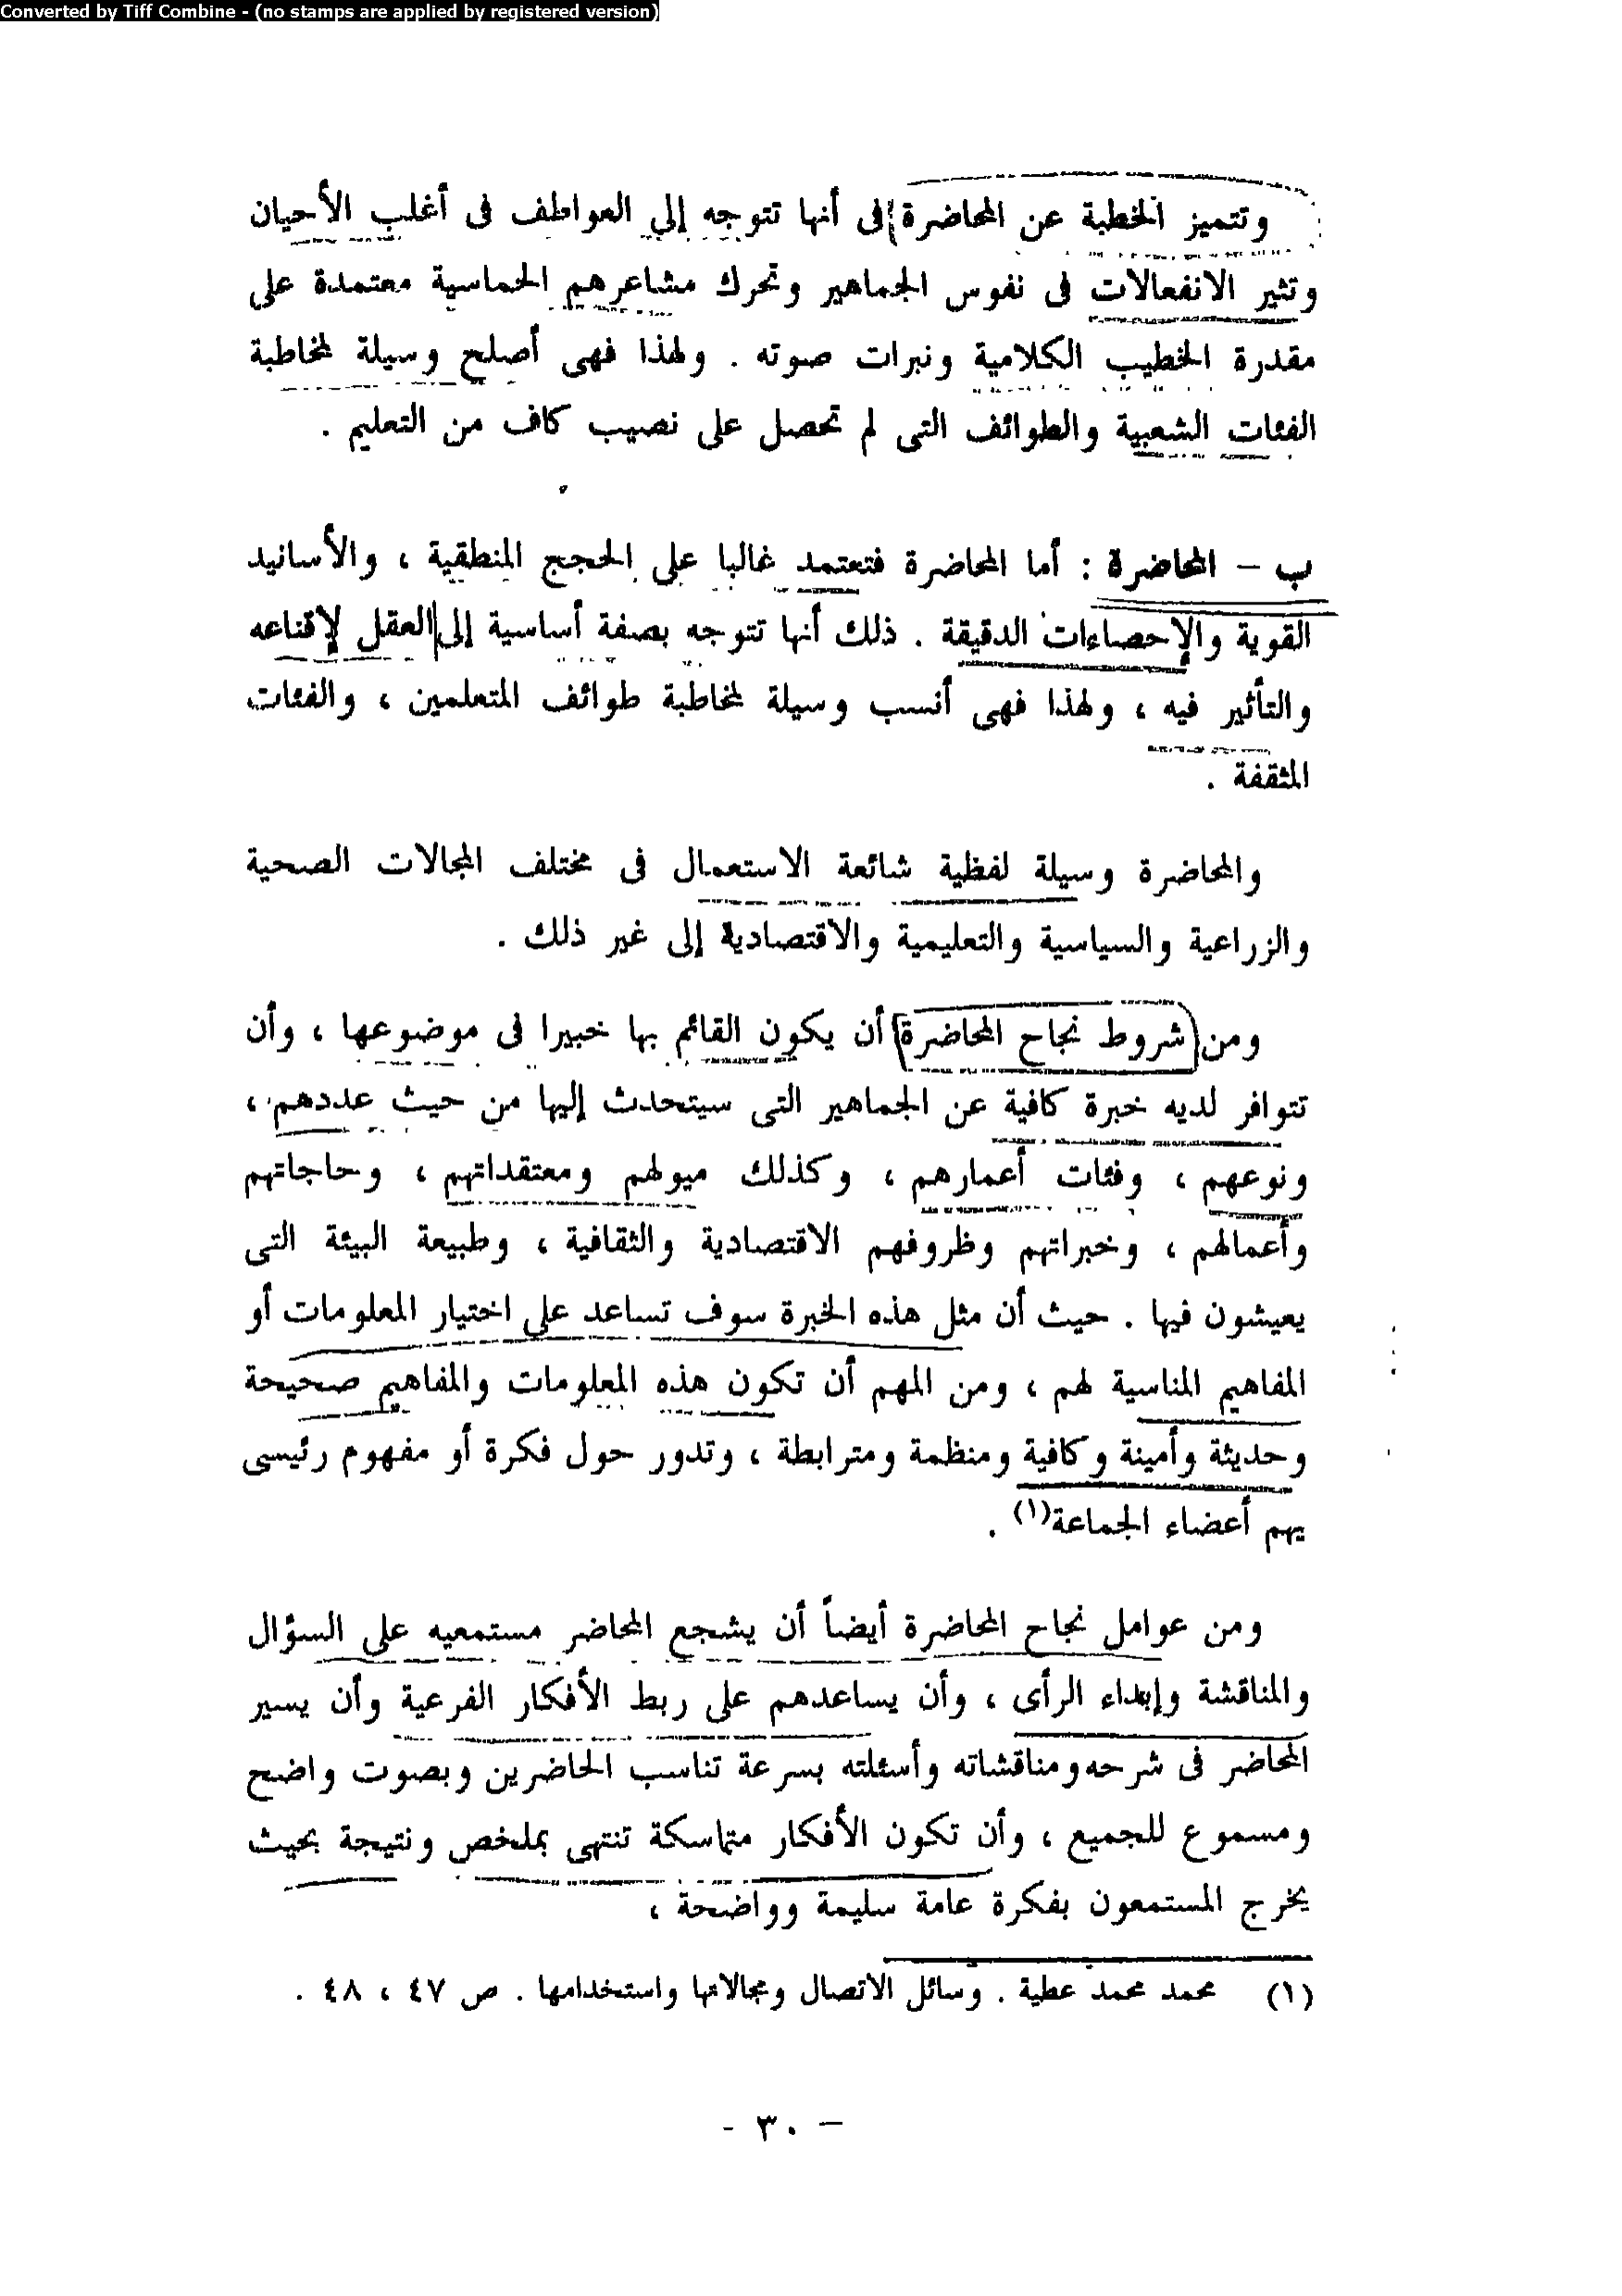 Converted by Tiff Combine - (no stamps are applied by registered version)
وتتميز الخطبة عن المحاضرة فى أنها تتوجه إلى العواطف فى أغلب الأحيان
وتثير الانفعالات فى نفوس الجماهير وتحرك مشاعرهم الحماسية معتمدة على
مقدرة الخطيب الكلامية ونبرات صوته . ولهذا فهى أصلح وسيلة لمخاطبة
الفئات الشعبية والطوائف التى لم تحصل على نصيب كاف من التعليم .
ب - المحاضرة : أما المحاضرة فتعتمد غالبا على الحجج المنطقية ، والأسانيد
القوية والإحصاءات الدقيقة . ذلك أنها تتوجه بصفة أساسية إلى العقل لإقناعه
والتأثير فيه ، ولهذا فهى أنسب وسيلة لمخاطبة طوائف المتعلمين ، والفئات
المثقفة .
والمحاضرة وسيلة لفظية شائعة الاستعمال فى مختلف المجالات الصحية
والزراعية والسياسية والتعليمية والاقتصادية إلى غير ذلك .
ومن شروط نجاح المحاضرة أن يكون القائم بها خبيرا فى موضوعها ، وأن
تتوافر لديه خبرة كافية عن الجماهير التى سيتحدث إليها من حيث عددهم ،
ونوعهم ، وفئات أعمارهم ، وكذلك ميولهم ومعتقداتهم ، وحاجاتهم
وأعمالهم ، وخبراتهم وظروفهم الاقتصادية والثقافية ، وطبيعة البيئة التى
يعيشون فيها . حيث أن مثل هذه الخبرة سوف تساعد على اختيار المعلومات أو
المفاهيم المناسبة لهم ، ومن المهم أن تكون هذه المعلومات والمفاهيم صحيحة
وحديثة وأمينة وكافية ومنظمة ومترابطة ، وتدور حول فكرة أو مفهوم رئيسى
يهم أعضاء الجماعة(١) .
ومن عوامل نجاح المحاضرة أيضاً أن يشجع المحاضر مستمعيه على السؤال
والمناقشة وإبداء الرأى ، وأن يساعدهم على ربط الأفكار الفرعية وأن يسير
المحاضر فى شرحه ومناقشاته وأسئلته بسرعة تناسب الحاضرين وبصوت واضح
ومسموع للجميع ، وأن تكون الأفكار متماسكة تنتهى بملخص ونتيجة بحيث
يخرج المستمعون بفكرة عامة سليمة وواضحة ،
(١) محمد محمد عطية . وسائل الاتصال ومجالاتها واستخدامها . ص ٤٧ ، ٤٨ .
- ٣٠ -